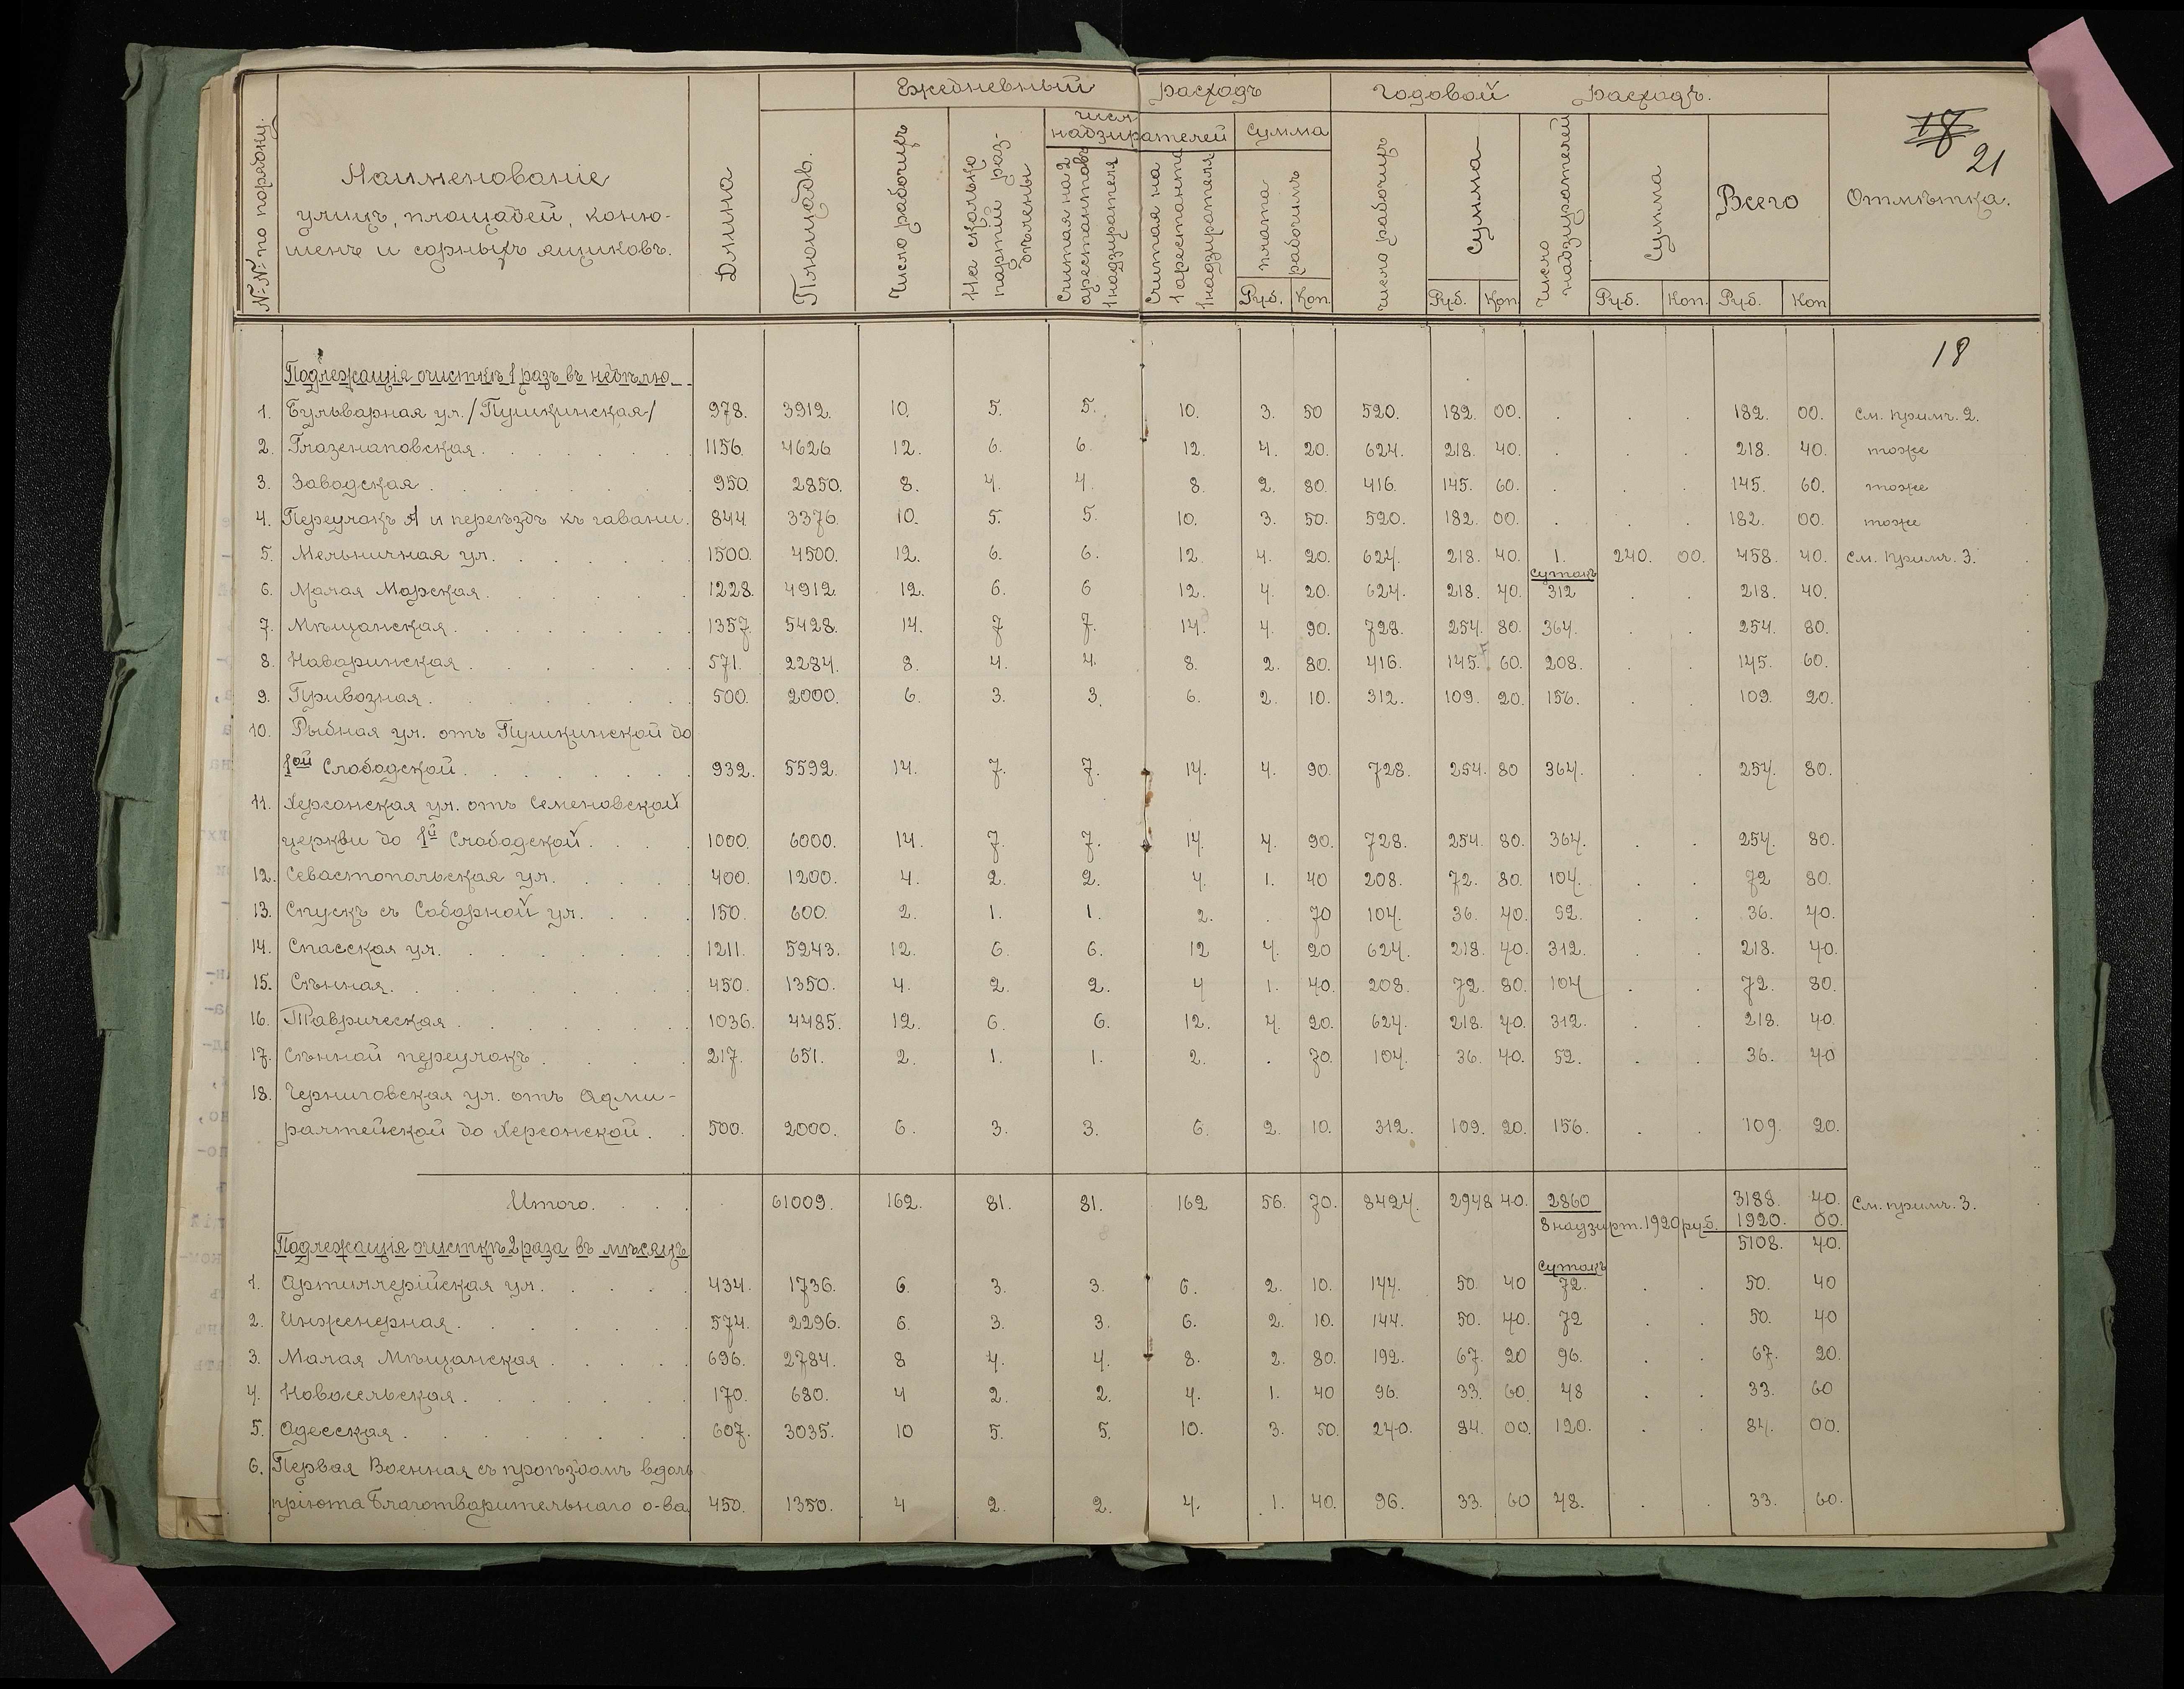 Ежедневный расходъ Годовой расходъ.
№ № по порядку.
Наименованіе
улицъ, площадей, коню-
шенъ и сорныхъ ящиковъ.
Длина
Площадь.
Число рабочихъ
На сколько
партій раз-
дѣлены
Числ.
надзирателей
Считая на 2
арестантовъ
1 надзирателя
Считая на
1 арестанта
1 надзирателя
Сумма
плата
рабочимъ
Руб. Коп.
Число рабочихъ
Сумма
Руб. Коп.
Число
надзирателей
Сумма
Руб. Коп.
Всего
Руб. Коп
18
21
Отмѣтка.
18
Подлежащія очисткѣ 1 разъ въ недѣлю.
1. Бульварная ул. /Пушкинская/ 978. 3912. 10. 5. 5. 10. 3. 50 520. 182. 00. . . . 182. 00. См. прим. 2.
2. Глазенаповская. 1156. 4626 12. 6. 6. 12. 4. 20. 624. 218. 40. . . . 218. 40. тоже
3. Заводская. 950. 2850. 8. 4. 4. 8. 2. 80. 416. 145. 60. . . . 145. 60. тоже
4. Переулокъ А и переѣздъ къ гавани. 844. 3376. 10. 5. 5. 10. 3. 50. 520. 182. 00. . . . 182. 00. тоже
5. Мельничная ул. 1500. 4500. 12. 6. 6. 12. 4. 20. 624. 218. 40. 1. 240. 00. 458. 40. См. прим. 3.
сутокъ
6. Малая Морская. 1228. 4912. 12. 6. 6 12. 4. 20. 624. 218. 40. 312 . . 218. 40.
7. Мѣщанская. 1357. 5428. 14. 7 7. 14. 4. 90. 728. 254. 80. 364. . . 254. 80.
8. Наваринская. 571. 2284. 8. 4. 4. 8. 2. 80. 416. 145. 60. 208. . . 145. 60.
9. Привозная. 500. 2000. 6. 3. 3. 6. 2. 10. 312. 109. 20. 156. . . 109. 20.
10. Рыбная ул. отъ Пушкинской до
1ой Слободской. 932. 5592. 14. 7. 7. 14. 4. 90. 728. 254. 80 364. . . 254. 80.
11. Херсонская ул. отъ Семеновской
церкви до 1й Слободской. 1000. 6000. 14. 7. 7. 14. 4. 90. 728. 254. 80. 364. . . 254. 80.
12. Севастопольская ул. 400. 1200. 4. 2. 2. 4. 1. 40 208. 72. 80. 104. . . 72 80.
13. Спускъ съ Соборной ул. 150. 600. 2. 1. 1. 2. . 70 104. 36. 40. 52. . . 36. 40.
14. Спасская ул. 1211. 5243. 12. 6 6. 12 4. 20 624. 218. 40. 312. . . 218. 40.
15. Сѣнная. 450. 1350. 4. 2. 2. 4 1. 40. 208. 72. 80. 104 . . 72. 80.
16. Таврическая. 1036. 4485. 12. 6. 6. 12. 4. 20. 624. 218. 40. 312. . . 218. 40.
17. Сѣнной переулокъ. 217. 651. 2. 1. 1. 2. . 70. 104. 36. 40. 52. . . 36. 40
18. Черниговская ул. отъ Адми-
ралтейской до Херсонской. 500. 2000. 6. 3. 3. 6. 2. 10. 312. 109. 20. 156. . . 109. 20.
Итого. 61009. 162. 81. 81. 162 56. 70. 8424. 2948 40. 2860 3188. 40. См. прим. 3.
8 надзирт. 1920 руб. 1920. 00.
5108. 40.
Подлежащія очисткѣ 2 раза въ мѣсяцъ
сутокъ
1. Артиллерійская ул. 434. 1736. 6. 3. 3. 6. 2. 10. 144. 50. 40 72. . . 50. 40
2. Инженерная. 574. 2296. 6. 3. 3. 6. 2. 10. 144. 50. 40. 72 . . 50. 40
3. Малая Мѣщанская. 696. 2784. 8 4. 4. 8. 2. 80. 192. 67. 20 96. . . 67. 20.
4. Новосельская. 170. 680. 4 2. 2. 4. 1. 40 96. 33. 60. 48 . . 33. 60
5. Одесская. 607. 3035. 10 5. 5. 10. 3. 50. 240. 84. 00. 120. . . 84. 00.
6. Первая Военная съ проѣздомъ вдоль
пріюта Благотварительнаго о-ва 450. 1350. 4 2. 2. 4. 1. 40. 96. 33. 60 48. . . 33. 60.